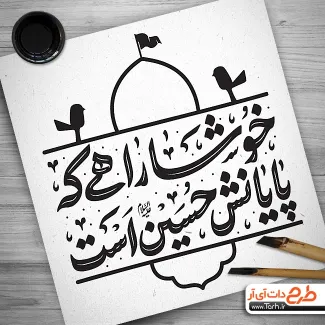 خوشا راهی که
پایانش حسین است
طرح دات آی آر
www.Tarh.ir